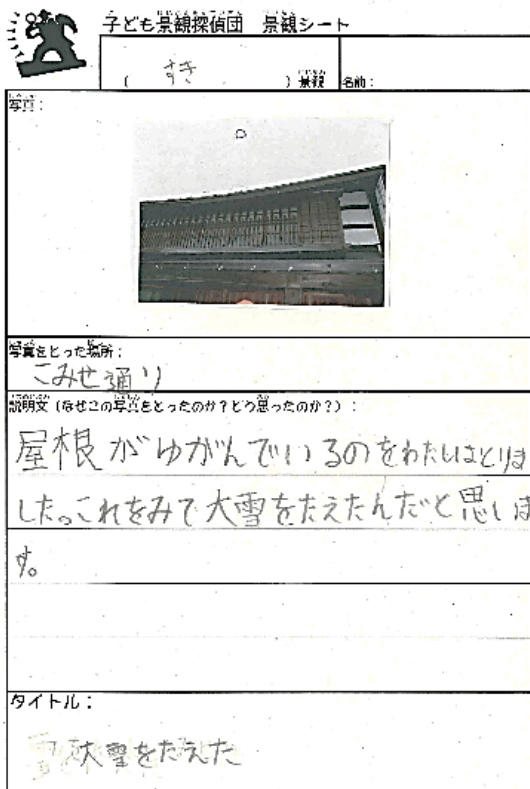 子ども景観探偵団　景観シート
（　すき　）景観　名前：
写真：
写真をとった場所：
こみせ通り
説明文（なぜこの写真をとったのか？どう思ったのか？）：
屋根がゆがんでいるのをわたしはとりま
した。これをみて大雪をたえたんだと思いま
す。
タイトル：
大雪をたえた